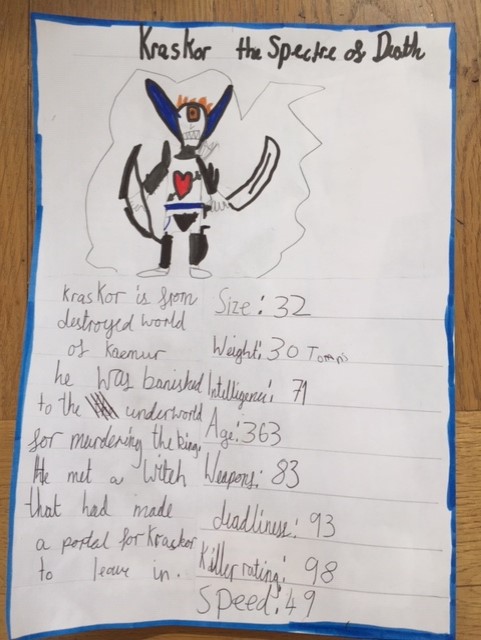 Kraskor the Spectre of Death
Kraskor is from
destroyed world
of Kaemur
he was banished
to the underworld
for murdering the king.
He met a witch
that had made
a portal for Kraskor
to leave in.
Size: 32
Weight: 30
Intelligence: 71
Age: 363
Weapons: 83
deadliness: 93
Killer rating: 98
Speed: 49